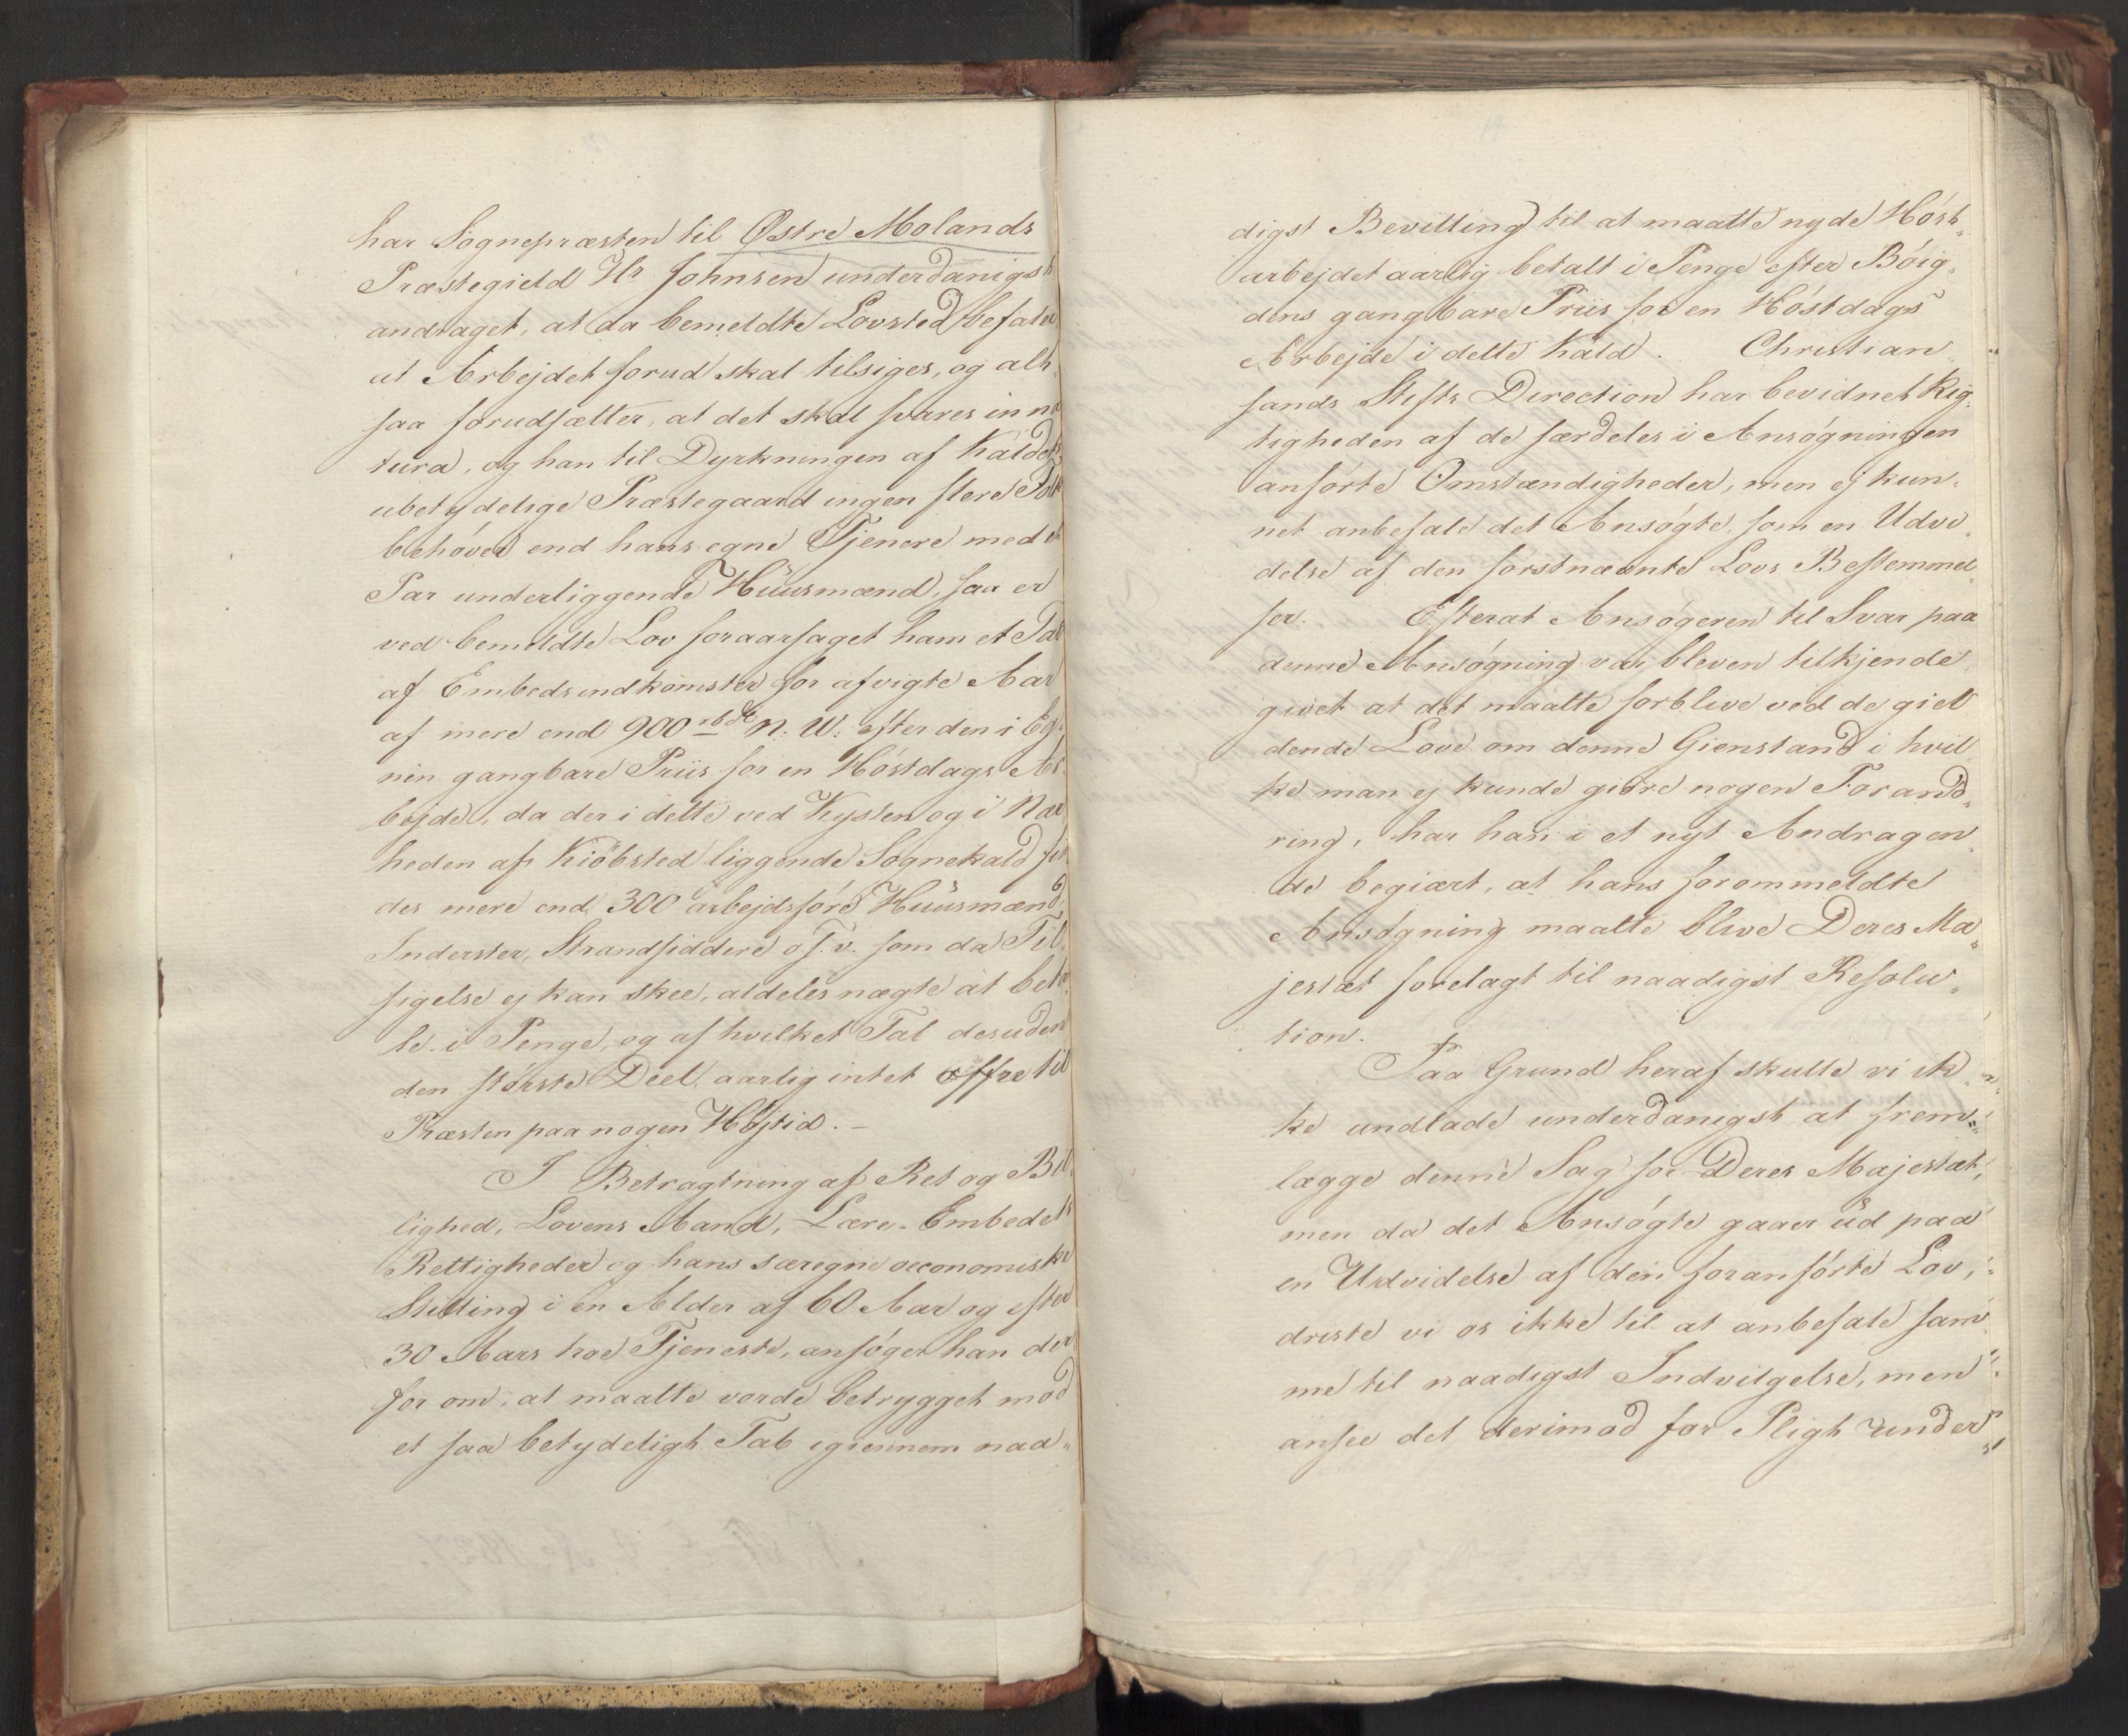 har Sognepræsten til Østre Molands
Præstegield Hr. Johnsen underdanigst
andraget, at da bemeldte Lovsted befaler
at Arbejdet forud skal tilsiges, og alt-
saa forudsætter, at det skal svares in na
tura, og han til Dyrkningen af Kaldets
ubetydelige Præstegaard ingen flere Folk
behøver end hans egne Tjenere med et
Par underliggende Huusmænd, saa er
ved bemeldte Lov foraarsaget ham et Tab
af Embedsindkomster for afvigte Aar
af mere end 900 rbdr N. V. efter den i Eg-
nen gangbare Priis for en Høstdags Ar-
bejde, da der i dette ved Kysten og i Nær
heden af Kiøbsted liggende Sognekald fin
des mere end 300 arbejdsføre Huusmænd
Inderster, Strandsiddere o. s. v. som da Til-
sigelse ej kan skee, aldeles nægte at beta-
le i Penge, og af hvilket Tal desuden
den største Deel aarlig intet offre til
Præsten paa nogen Højtid. –
I Betragtning af Ret og Bil-
lighed, Lovens Aand, Lære-Embedets
Rettigheder og hans særegne oeconomiske
Stilling i en Alder af 60 Aar og efter
30 Aars troe Tjeneste, ansøger han der
for om, at maatte vorde betrygget mod
et saa betydeligt Tab igiennem naa-
digst Bevilling til at maatte nyde Høst-
arbejdet aarlig betalt i Penge efter Bøig-
dens gangbare Priis for en Høstdags
Arbejde i dette Kald. Christian-
sands Stifts Direction har bevidnet Rig-
tigheden af de særdeles i Ansøgningen
anførte Omstændigheder, men ej kun-
net anbefale det Ansøgte, som en Udvi-
delse af den førstnævnte Lovs Bestemmel-
ser. Efterat Ansøgeren til Svar paa
denne Ansøgning var bleven tilkjende
givet at det maatte forblive ved de giel
dende Love om denne Gienstand i hvil
ke man ej kunde giøre nogen Forand-
ring, har han i et nyt Andragen-
de begiært, at hans forommeldte
Ansøgning maatte blive Deres Ma-
jestæt forelagt til naadigst Resolu-
tion.
Paa Grund heraf skulle vi ik-
ke undlade underdanigst at frem-
lægge denne Sag for Deres Majestæt,
men da det Ansøgte gaaer ud paa
en Udvidelse af den foranførte Lov,
driste vi os ikke til at anbefale sam-
me til naadigst Indvilgelse, men
ansee det derimod for Pligt under-